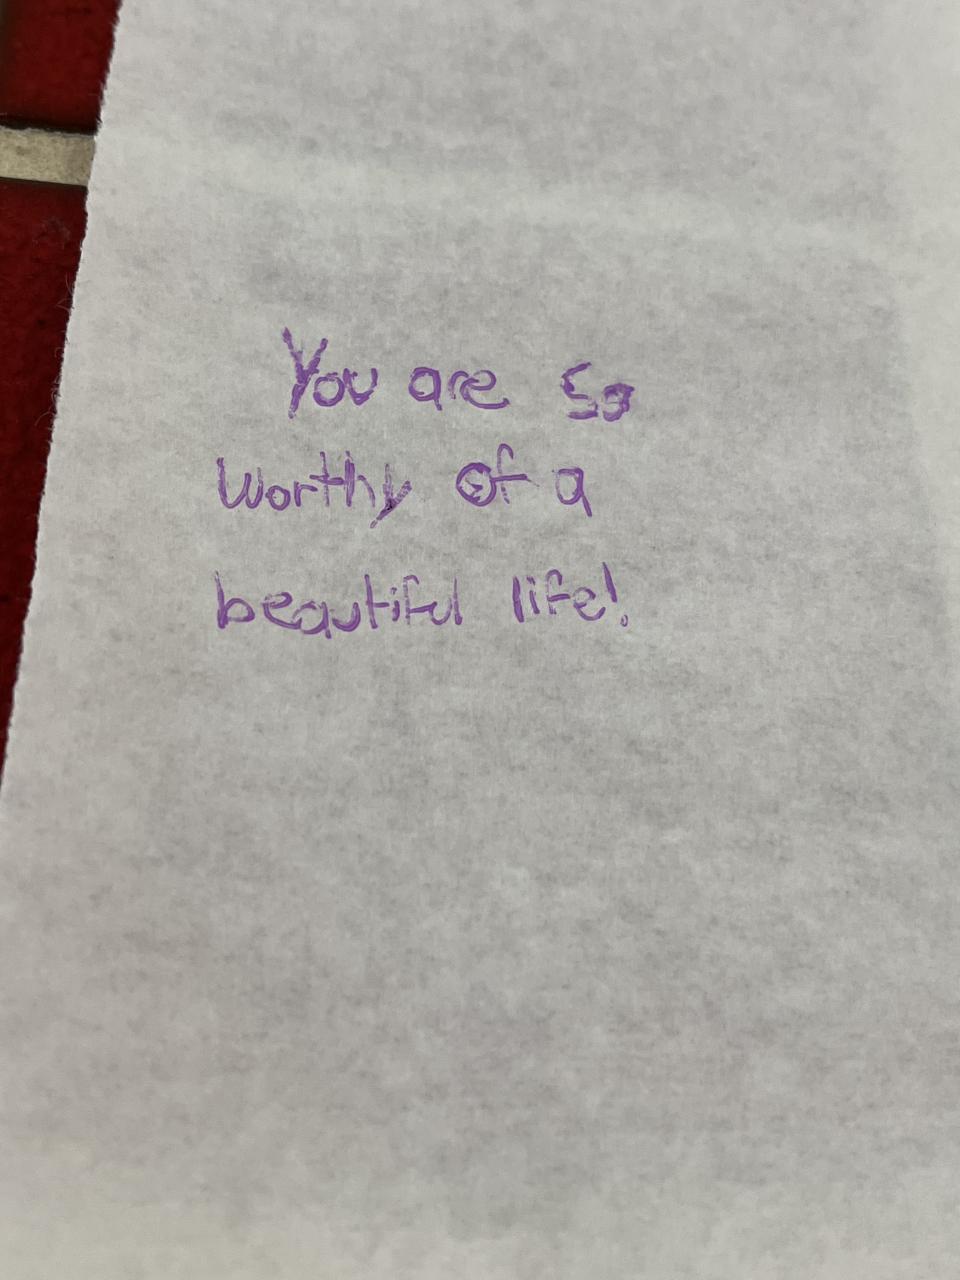 You are so
worthy of a
beautiful life!